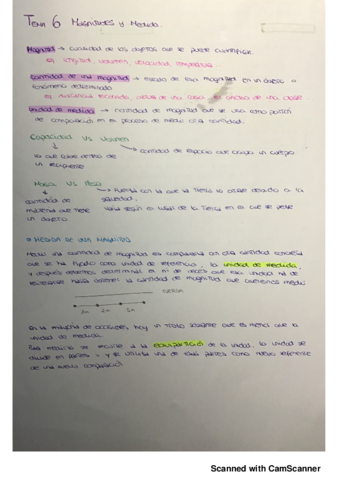 Tema 6 Magnitudes y Medida.
Magnitud → cualidad de los objetos que se puede cuantificar.
ej longitud, volumen, velocidad, temperatura
Cantidad de una magnitud → estado de esa magnitud en un objeto o
fenómeno determinado
ej distancia recorrida, de una casa, de una clase
Unidad de medida → cantidad de magnitud que se usa como patrón
de comparación en el proceso de medir otra cantidad.
Capacidad VS Volumen
cantidad de espacio que ocupa un cuerpo
lo que cabe dentro de
un recipiente
Masa VS Peso
Fuerza con la que la Tierra lo atrae debido a la
cantidad de gravedad,
materia que tiene varía según el lugar de la Tierra en el que se pese
un objeto
MEDIDA DE UNA MAGNITUD
Medir una cantidad de magnitud es compararla con otra cantidad concreta
que se ha fijado como unidad de referencia, la unidad de medida,
y después debemos determinar el nº de veces que esa unidad ha de
hasta obtener la cantidad de magnitud que queremos medir
En la mayoría de ocasiones, hay un trozo sobrante que es menor que la
unidad de medida.
se recurre a la equipartición de la unidad, la unidad se
divide en partes = y se utiliza una de esas partes como
de una nueva comparación.
Scanned with CamScanner